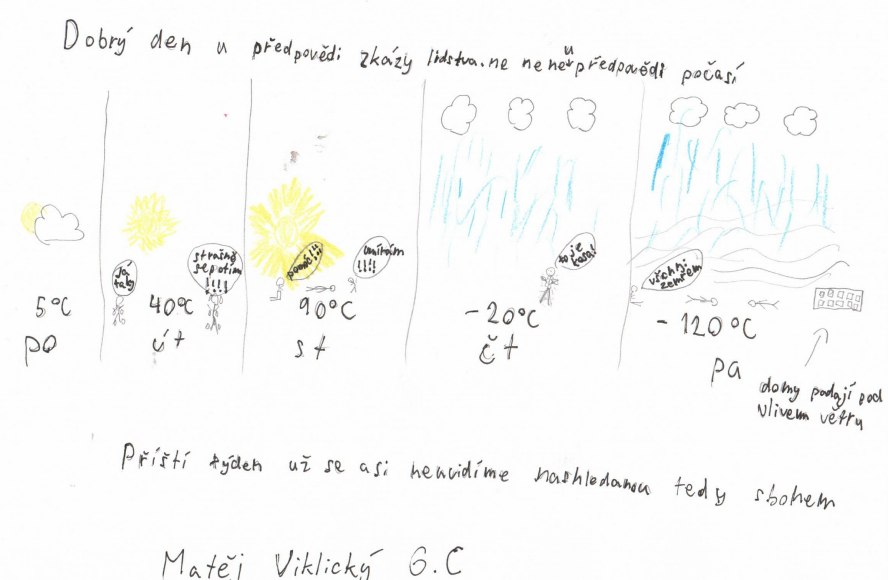 Dobrý den u předpovědi zkázy lidstva. ne ne ne u předpovědi počasí
já
taky
strašně
se potím
!!!!
pomóc!!!
umírám
!!!!
to je
kosa!
všichni
zemřem
5°C
40°C
90°C
-20°C
-120°C
po
út
st
čt
pa
domy padají pod
vlivem větru
Příští týden už se asi neuvidíme nashledanou tedy sbohem
Matěj Viklický 6.C